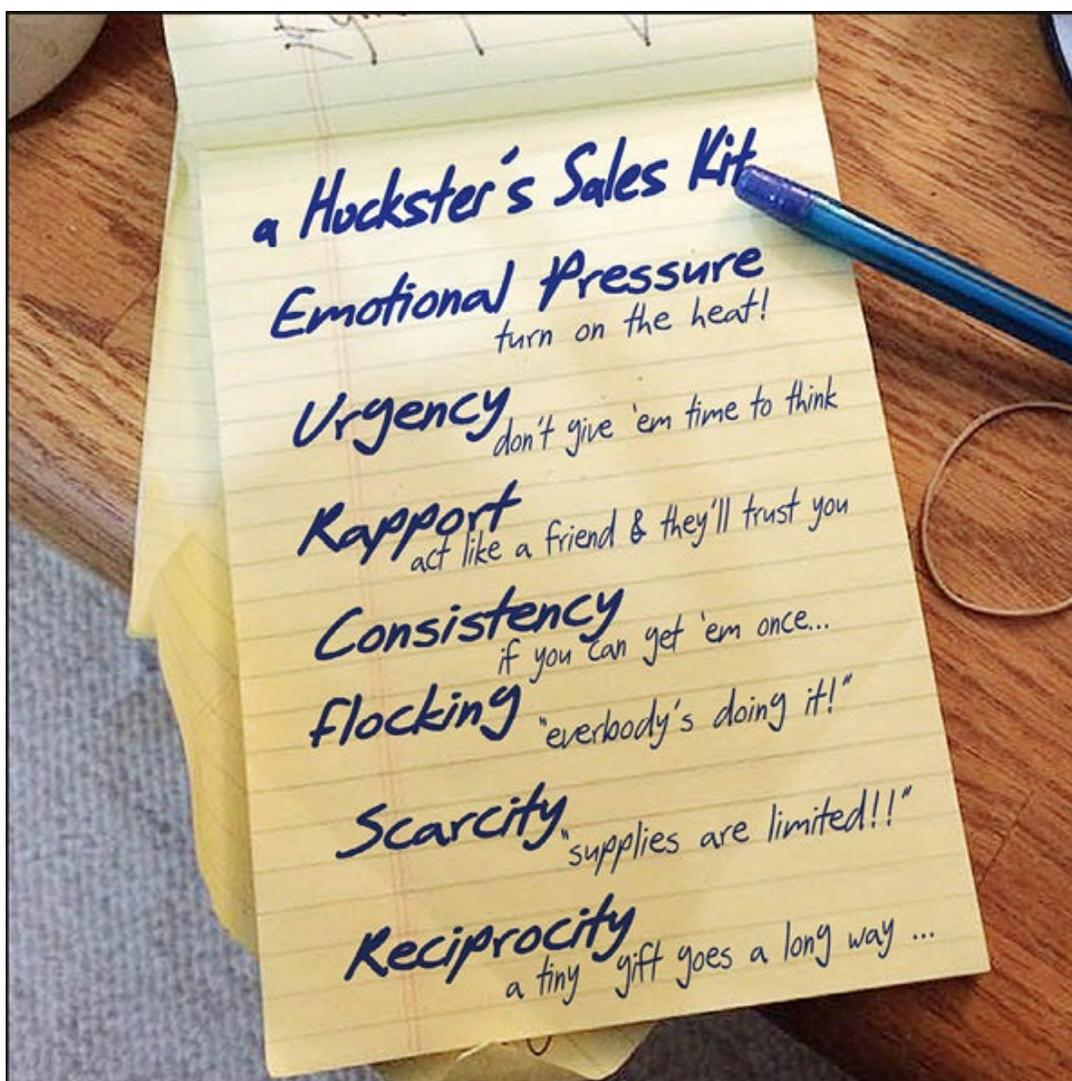 a Huckster's Sales Kit
Emotional Pressure
turn on the heat!
Urgency
don't give 'em time to think
Rapport
act like a friend & they'll trust you
Consistency
if you can get 'em once...
flocking
"everbody's doing it!"
Scarcity
"supplies are limited!!"
Reciprocity
a tiny gift goes a long way ...